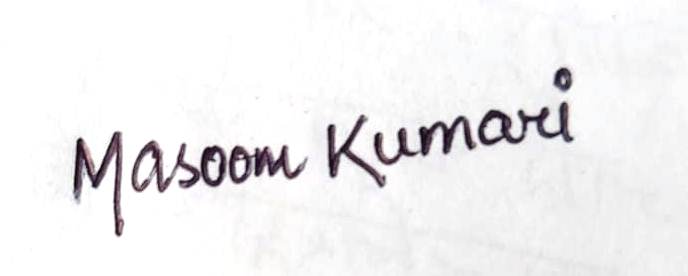 Masoom Kumari